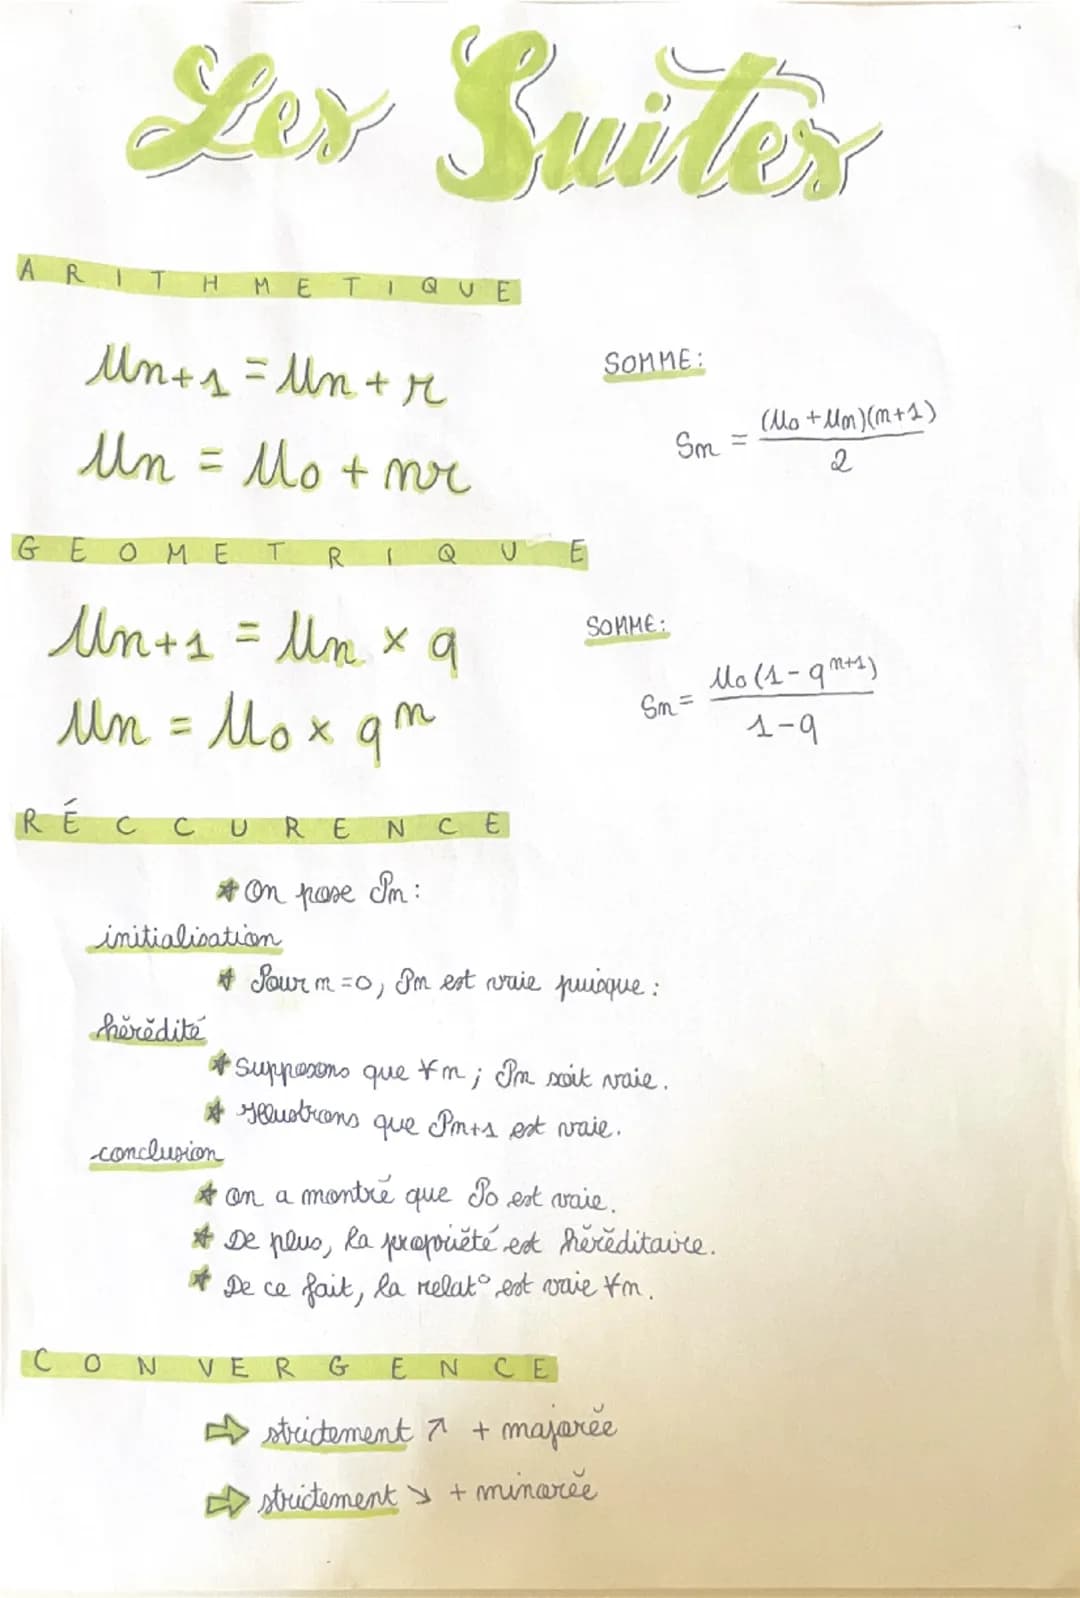 Les Suites
ARITHMETIQUE
Un+1 = Un + r
Un = U0 + nr
SOMME:
Sn = (U0 + Un)(n+1) / 2
GEOMETRIQUE
Un+1 = Un × q
Un = U0 × q^n
SOMME:
Sn = U0(1 - q^n+1) / 1-q
RÉCCURENCE
* On pose Pn :
initialisation
* Pour n = 0, Pn est vraie puisque :
hérédité
* Supposons que ∀n ; Pn soit vraie.
* Illustrons que Pn+1 est vraie.
conclusion
* On a montré que P0 est vraie.
* De plus, la propriété est héréditaire.
* De ce fait, la relat° est vraie ∀n.
CONVERGENCE
⇨ strictement ↗ + majorée
⇨ strictement ↘ + minorée